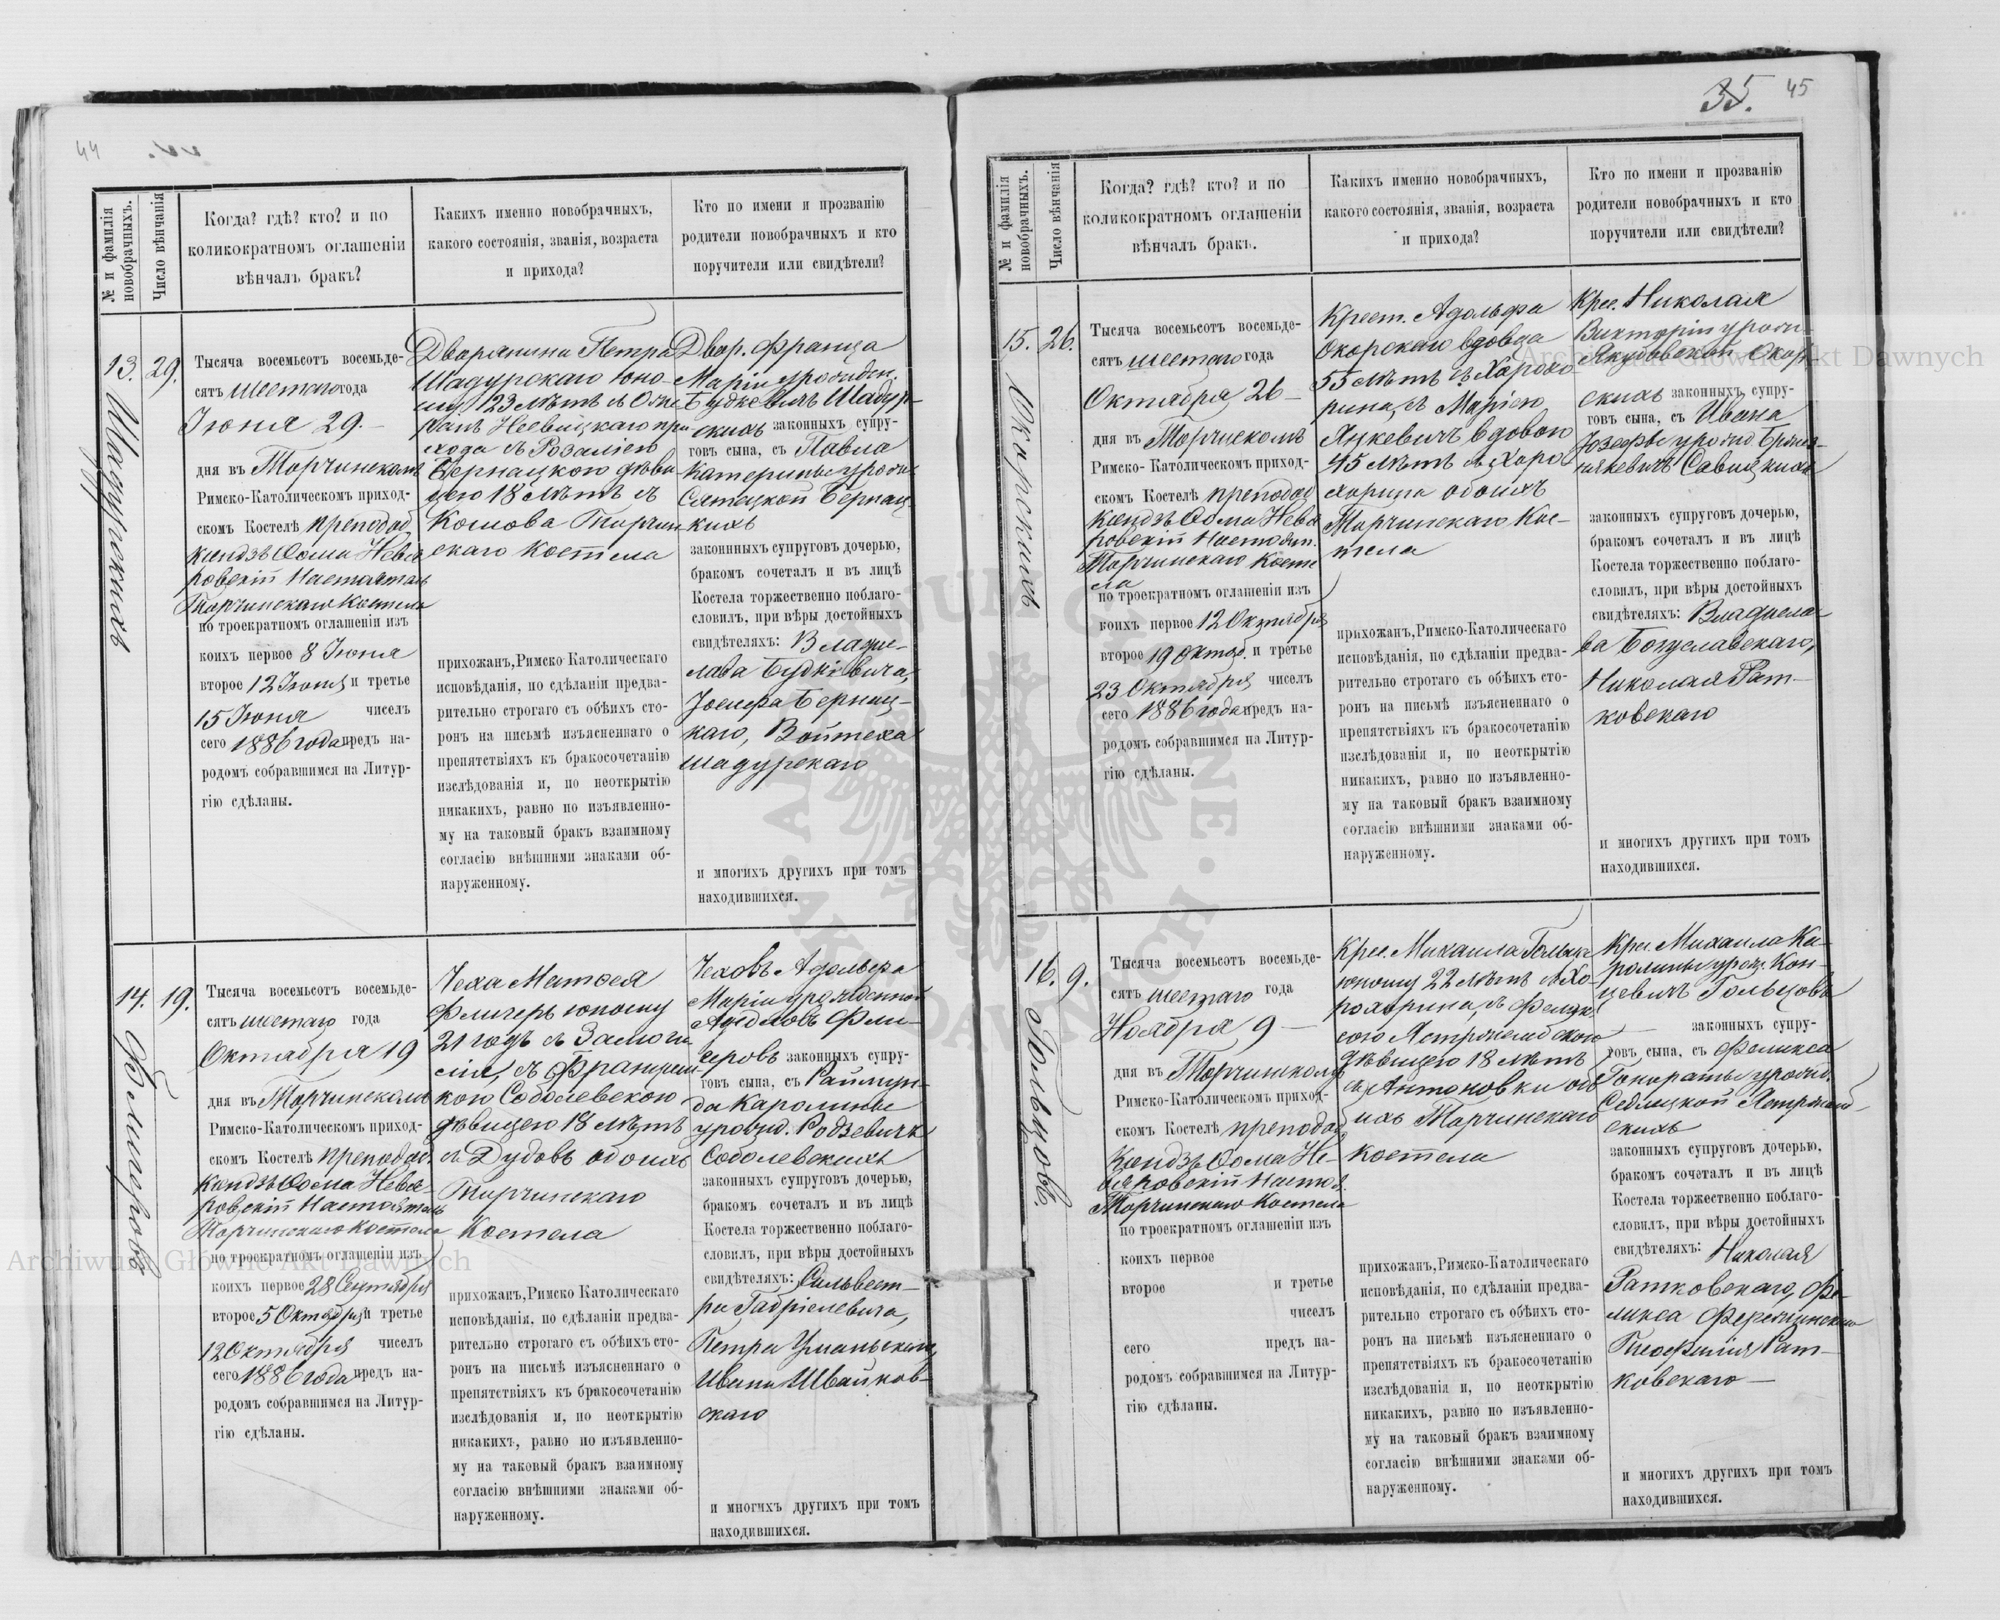 44
№ и фамилія новобрачныхъ.
Число вѣнчанія
Когда? гдѣ? кто? и по
коликократномъ оглашеніи
вѣнчалъ бракъ?
Какихъ именно новобрачныхъ,
какого состоянія, званія, возраста
и прихода?
Кто по имени и прозванію
родители новобрачныхъ и кто
поручители или свидѣтели?
13.
Шадурскихъ
29.
Тысяча восемьсотъ восемьде-
сятъ шестаго года
Іюня 29.
дня въ Торчинскомъ
Римско-Католическомъ приход-
скомъ Костелѣ препод.
Ксендзъ Ѳома Невя-
ровскій Настоятель
Торчинскаго Костела
по троекратномъ оглашеніи изъ
коихъ первое 8 Іюня
второе 12 Іюня и третье
15 Іюня чиселъ
сего 1886 года предъ на-
родомъ собравшимся на Литур-
гію сдѣланы.
Дворянина Петра
Шадурскаго юно-
шу 23 лѣтъ съ
при
хода съ Розаліею
Бернацкою дѣви-
цею 18 лѣтъ съ
Торчин
скаго Костела
прихожан, Римско-Католическаго
исповѣданія, по сдѣланіи предва-
рительно строгаго съ обѣихъ сто-
ронъ на письмѣ изъясненнаго о
препятствіяхъ къ бракосочетанію
изслѣдованія и, по неоткрытію
никакихъ, равно по изъявленно-
му на таковый бракъ взаимному
согласію внѣшними знаками об-
наруженному.
Двор. Франца
Маріи урожден.
Будкевичъ Шадур-
скихъ законныхъ супру-
говъ сына, съ Павла
Катерины урожд.
Бернац-
кихъ
законнныхъ супруговъ дочерью,
бракомъ сочеталъ и въ лицѣ
Костела торжественно поблаго-
словилъ, при вѣры достойныхъ
свидѣтеляхъ: Владис-
лава Будкевича,
Іосифа Бернац-
каго, Войтеха
Шадурскаго
и многихъ другихъ при томъ
находившихся.
14.
Флигеровъ
19.
Тысяча восемьсотъ восемьде-
сятъ шестаго года
Октября 19
дня въ Торчинскомъ
Римско-Католическомъ приход-
скомъ Костелѣ препод.
Ксендзъ Ѳома Невя-
ровскій Настоятель
Торчинскаго Костела
по троекратномъ оглашеніи изъ
коихъ первое 28 Сентября
второе 5 Октября и третье
12 Октября чиселъ
сего 1886 года предъ на-
родомъ собравшимся на Литур-
гію сдѣланы.
Чеха Матѳея
Флигеръ юношу
21 годъ съ
съ Францишк
кою Соболевскою
дѣвицею 18 лѣтъ
съ Дубовъ обоихъ
Торчинскаго
Костела
прихожан, Римско Католическаго
исповѣданія, по сдѣланіи предва-
рительно строгаго съ обѣихъ сто-
ронъ на письмѣ изъясненнаго о
препятствіяхъ къ бракосочетанію
изслѣдованія и, по неоткрытію
никакихъ, равно по изъявленно-
му на таковый бракъ взаимному
согласію внѣшними знаками об-
наруженному.
Чеховъ Адольфа
Маріи урожденной
Фли-
геровъ законныхъ супру-
говъ сына, съ Раймун-
да Каролины
урожд. Родзевичъ
Соболевскихъ
законныхъ супруговъ дочерью,
бракомъ сочеталъ и въ лицѣ
Костела торжественно поблаго-
словилъ, при вѣры достойныхъ
свидѣтеляхъ: Сильвест-
ра Габріелевича,
Петра Уманьскаго,
Ивана Швайков-
скаго
и многихъ другихъ при томъ
находившихся.
35. 45
№ и фамилія новобрачныхъ.
Число вѣнчанія
Когда? гдѣ? кто? и по
коликократномъ оглашеніи
вѣнчалъ бракъ.
Какихъ именно новобрачныхъ,
какого состоянія, званія, возраста
и прихода?
Кто по имени и прозванію
родители новобрачныхъ и кто
поручители или свидѣтели?
15.
Окорскихъ
26.
Тысяча восемьсотъ восемьде-
сятъ шестаго года
Октября 26
дня въ Торчинскомъ
Римско-Католическомъ приход-
скомъ Костелѣ препод.
Ксендзъ Ѳома Невя
ровскій Настоят.
Торчинскаго Косте
ла
по троекратномъ оглашеніи изъ
коихъ первое 12 Октября
второе 19 Октяб. и третье
23 Октября чиселъ
сего 1886 года предъ на-
родомъ собравшимся на Литур-
гію сдѣланы.
Крест. Адольфа
Окорскаго вдовца
55 лѣтъ съ Харохо
рина, съ Маріею
Янкевичъ вдовою
45 лѣтъ съ Харо
хорина обоихъ
Торчинскаго Кос-
тела
прихожан, Римско-Католическаго
исповѣданія, по сдѣланіи предва-
рительно строгаго съ обѣихъ сто-
ронъ на письмѣ изъясненнаго о
препятствіяхъ къ бракосочетанію
изслѣдованія и, по неоткрытію
никакихъ, равно по изъявленно-
му на таковый бракъ взаимному
согласію внѣшними знаками об-
наруженному.
Крес. Николая
Викторіи урожд.
Якубовской Окор-
скихъ законныхъ супру-
говъ сына, съ Ивана
Юзефы урожд.
Савицкихъ
законныхъ супруговъ дочерью,
бракомъ сочеталъ и въ лицѣ
Костела торжественно поблаго-
словилъ, при вѣры достойныхъ
свидѣтеляхъ: Владисла-
ва Богуславскаго,
Николая Рат-
ковскаго
и многихъ другихъ при томъ
находившихся.
16.
Гольцовъ
9.
Тысяча восемьсотъ восемьде-
сятъ шестаго года
Ноября 9
дня въ Торчинскомъ
Римско-Католическомъ приход-
скомъ Костелѣ препод.
Ксендзъ Ѳома Не-
вяровскій Настоя.
Торчинскаго Костела
по троекратномъ оглашеніи изъ
коихъ первое
второе и третье
чиселъ
сего предъ на-
родомъ собравшимся на Литур-
гію сдѣланы.
Крес. Михаила Гольца
юношу 22 лѣтъ съ Хо-
рохорина, съ Фелик
сою Ястржембскою
дѣвицею 18 лѣтъ
съ Антоновки обо
ихъ Торчинскаго
Костела
прихожан, Римско-Католическаго
исповѣданія, по сдѣланіи предва-
рительно строгаго съ обѣихъ сто-
ронъ на письмѣ изъясненнаго о
препятствіяхъ къ бракосочетанію
изслѣдованія и, по неоткрытію
никакихъ, равно по изъявленно-
му на таковый бракъ взаимному
согласію внѣшними знаками об-
наруженному.
Крес. Михаила Ка-
ролины урож. Кон-
цевичъ Гольцовъ
законныхъ супру-
говъ сына, съ Феликса
Гонораты урожд.
Седлецкой Ястржемб-
скихъ
законныхъ супруговъ дочерью,
бракомъ сочеталъ и въ лицѣ
Костела торжественно поблаго-
словилъ, при вѣры достойныхъ
свидѣтеляхъ: Николая
Ратковскаго, Фе-
ликса
Теофилія Рат-
ковскаго
и многихъ другихъ при томъ
находившихся.
Archiwum Główne Akt Dawnych
Archiwum Główne Akt Dawnych
ARCHIWUM GŁÓWNE AKT DAWNYCH